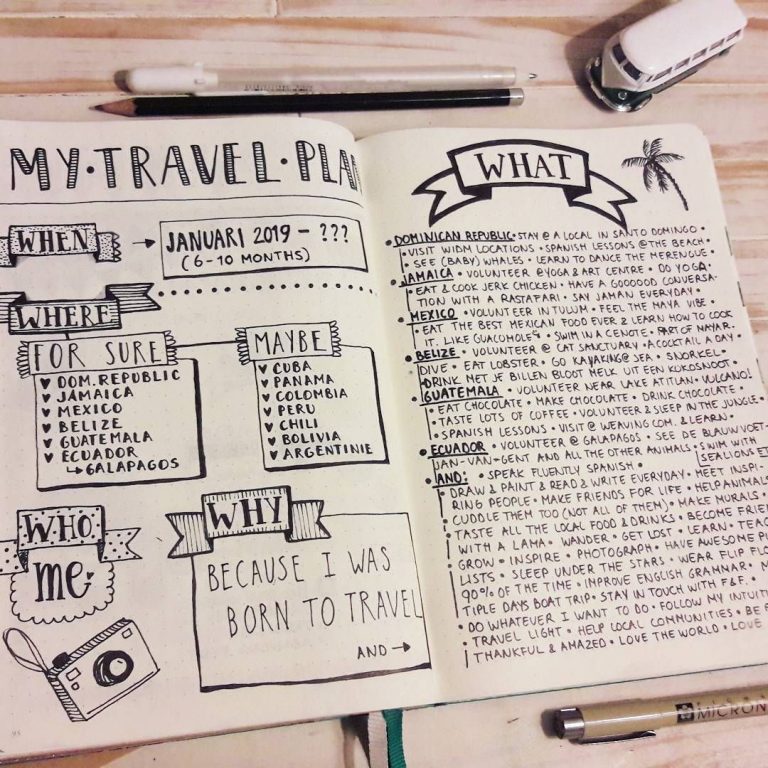 MY·TRAVEL·PLA
WHEN
JANUARI 2019 - ???
(6-10 MONTHS)
WHERE
FOR SURE
♥ DOM.REPUBLIC
♥ JAMAICA
♥ MEXICO
♥ BELIZE
♥ GUATEMALA
♥ ECUADOR
↳ GALAPAGOS
MAYBE
♥ CUBA
♥ PANAMA
♥ COLOMBIA
♥ PERU
♥ CHILI
♥ BOLIVIA
♥ ARGENTINIE
WHO
me
WHY
BECAUSE I WAS
BORN TO TRAVEL
AND →
WHAT
• DOMINICAN REPUBLIC • STAY @ A LOCAL IN SANTO DOMINGO •
• VISIT WIDM LOCATIONS • SPANISH LESSONS @ THE BEACH •
• SEE (BABY) WHALES • LEARN TO DANCE THE MERENGUE •
JAMAICA • VOLUNTEER @ YOGA & ART CENTRE • DO YOGA •
• EAT & COOK JERK CHICKEN • HAVE A GOOOOD CONVERSA-
TION WITH A RASTAFARI • SAY JAMAN EVERYDAY •
• MEXICO • VOLUNTEER IN TULUM • FEEL THE MAYA VIBE •
• EAT THE BEST MEXICAN FOOD EVER & LEARN HOW TO COOK
IT. LIKE GUACOMOLE • SWIM IN A CENOTE • PART OF MAYAR.
• BELIZE • VOLUNTEER @ CAT SANCTUARY • A COCKTAIL A DAY •
DIVE • EAT LOBSTER • GO KAYAKING @ SEA • SNORKEL •
• DRINK MET JE BILLEN BLOOT MELK UIT EEN KOKOSNOOT •
• GUATEMALA • VOLUNTEER NEAR LAKE ATITLAN • VULCANO!
• EAT CHOCOLATE • MAKE CHOCOLATE • DRINK CHOCOLATE •
• TASTE LOTS OF COFFEE • VOLUNTEER & SLEEP IN THE JUNGLE •
• SPANISH LESSONS • VISIT @ WEAVING COM. & LEARN •
• ECUADOR • VOLUNTEER @ GALAPAGOS • SEE DE BLAUWVOET-
JAN-VAN-GENT AND ALL THE OTHER ANIMALS • SWIM WITH
SEALIONS
• AND: • SPEAK FLUENTLY SPANISH •
• DRAW & PAINT & READ & WRITE EVERYDAY • MEET INSPI-
RING PEOPLE • MAKE FRIENDS FOR LIFE • HELP ANIMALS
CUDDLE THEM TOO (NOT ALL OF THEM) • MAKE MURALS •
• TASTE ALL THE LOCAL FOOD & DRINKS • BECOME FRIE
WITH A LAMA • WANDER • GET LOST • LEARN • TEAC
GROW • INSPIRE • PHOTOGRAPH • HAVE AWESOME P
LISTS • SLEEP UNDER THE STARS • WEAR FLIP FLO
90% OF THE TIME • IMPROVE ENGLISH GRAMMAR • M
TIPLE DAYS BOAT TRIP • STAY IN TOUCH WITH F&F. •
• DO WHATEVER I WANT TO DO • FOLLOW MY INTUIT
• TRAVEL LIGHT • HELP LOCAL COMMUNITIES • BE
THANKFUL & AMAZED • LOVE THE WORLD • LOVE
MICRON